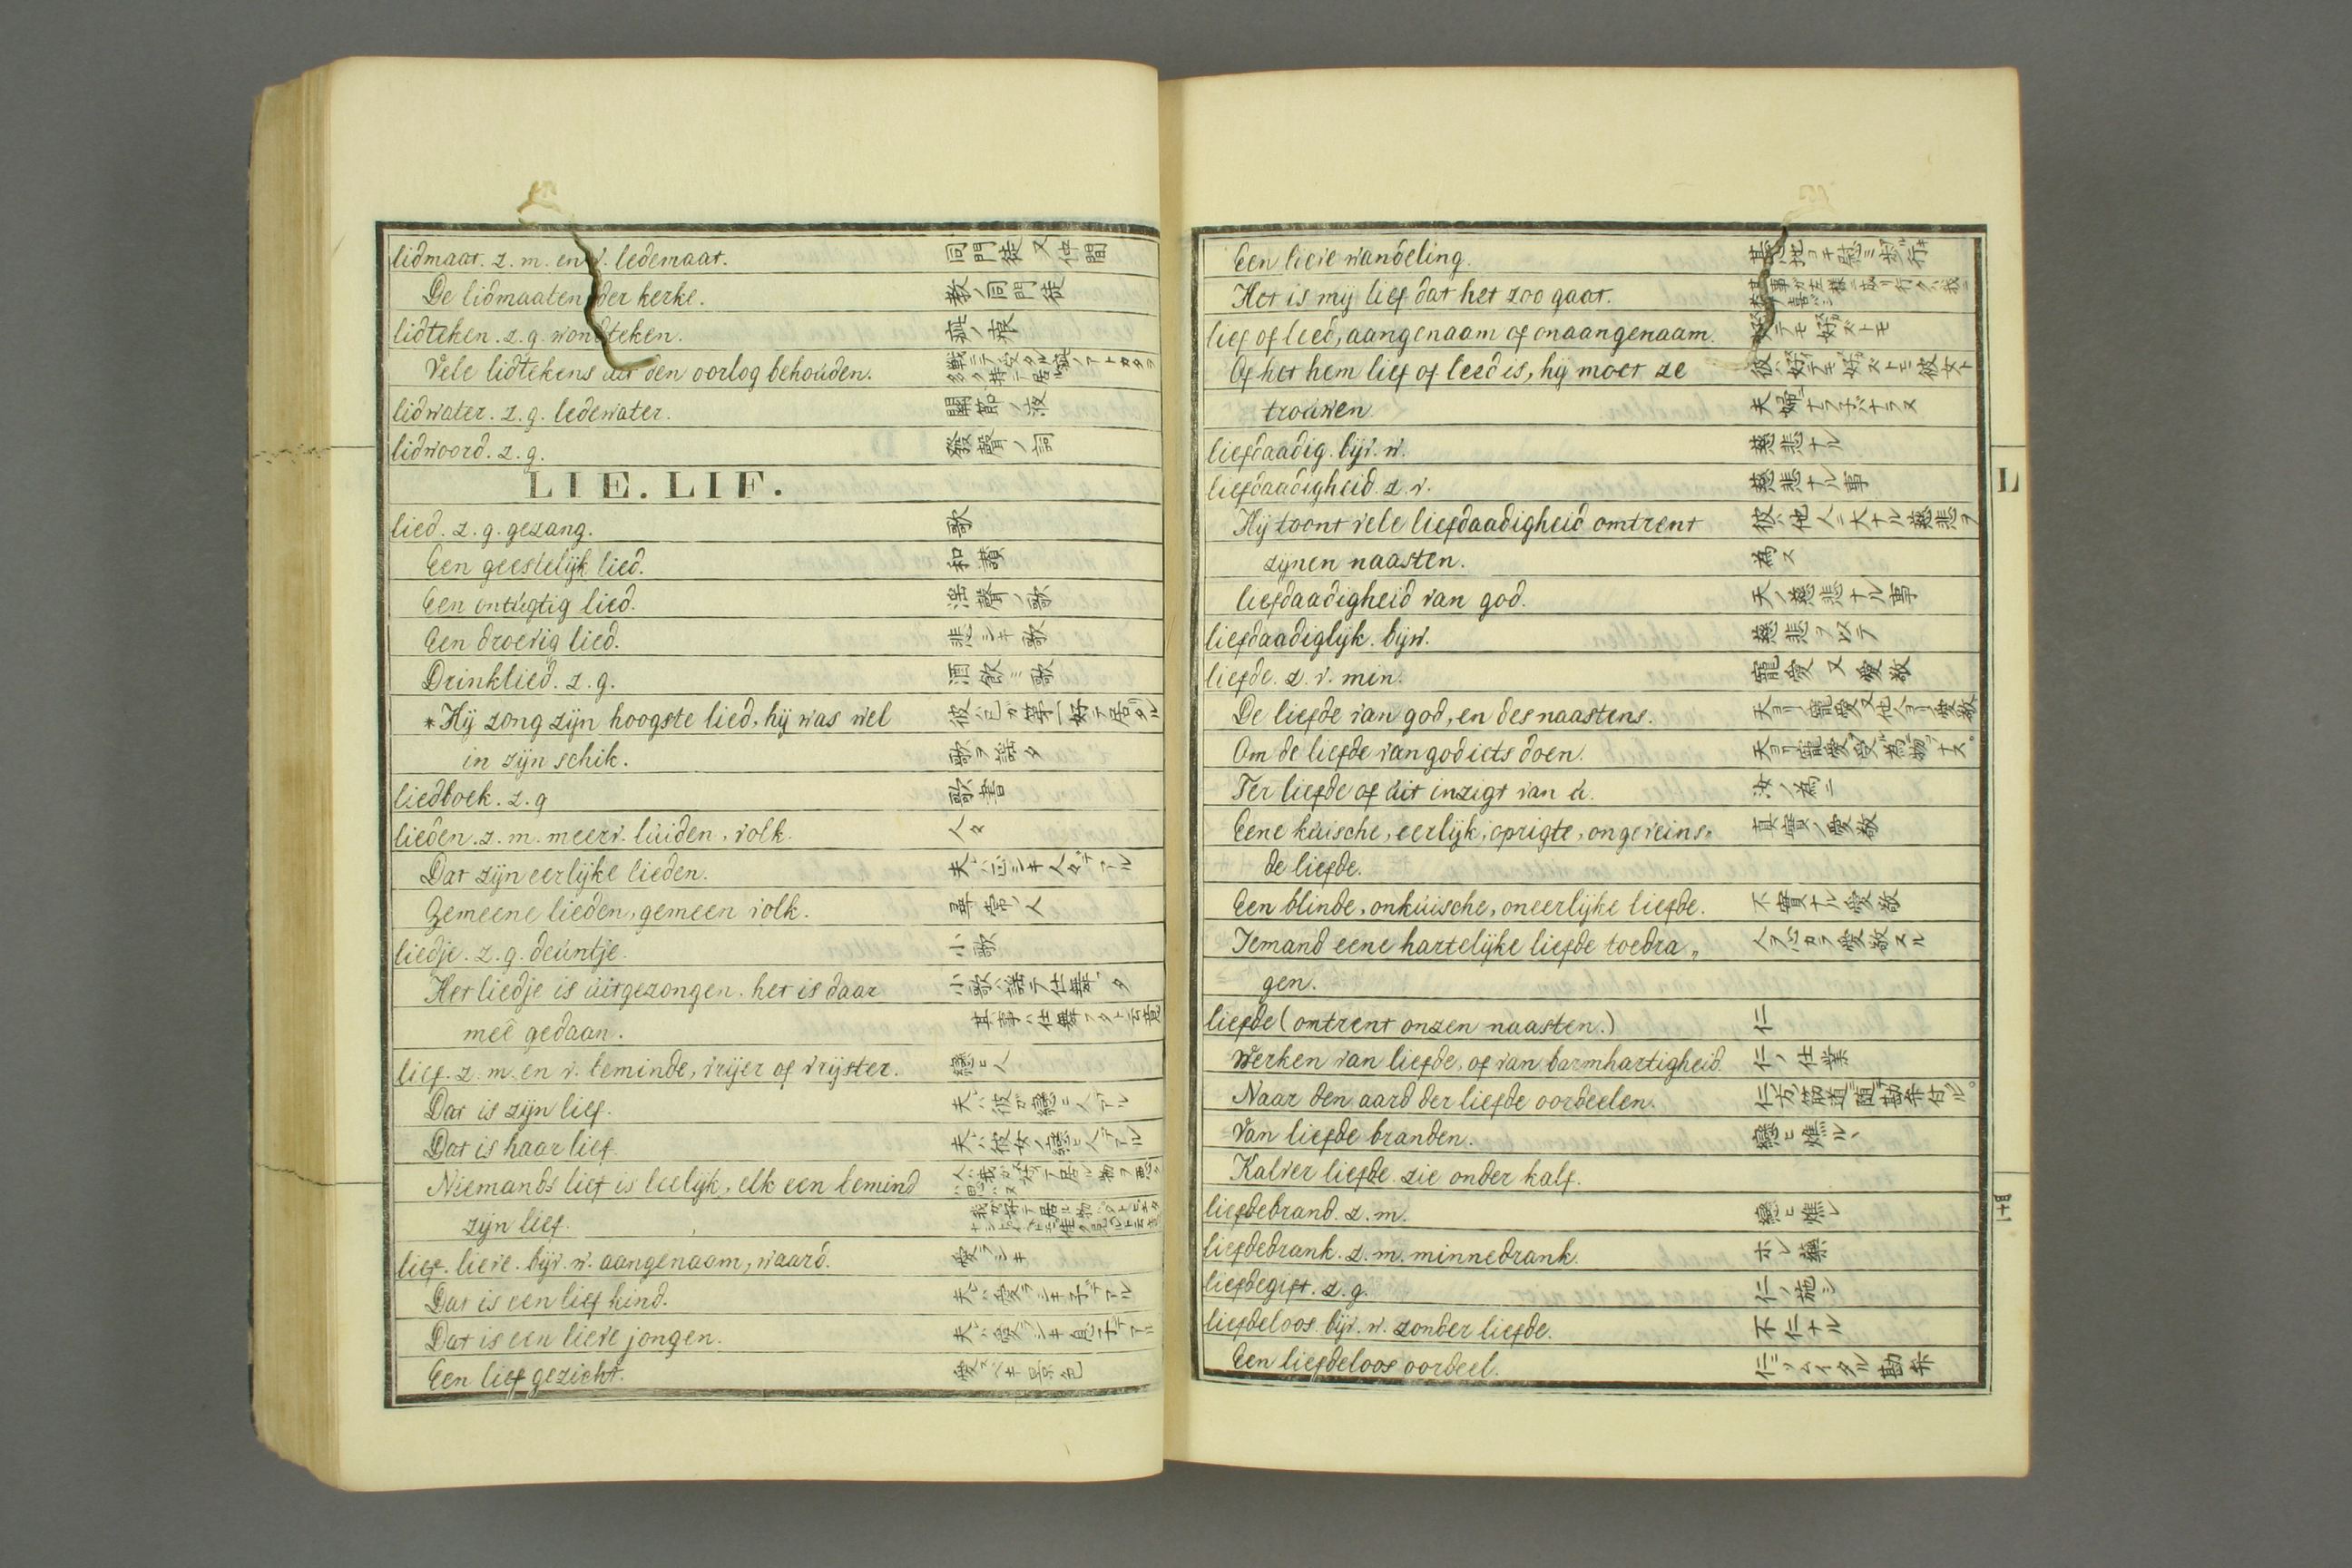 lidmaat. z. m. en v. ledemaat. 同門徒 又仲間
De lidmaaten der kerke. 教ノ同門徒
lidteken. z. g. wondteken. 疵ノ痕
Vele lidtekens uit den oorlog behouden.
lidwater. z. g. ledewater. 關節ノ液
lidwoord. z. g. 發聲ノ詞
LIE. LIF.
lied. z. g. gezang. 歌
Een geestelijk lied. 和讃
Een ontugtig lied. 淫聲ノ歌
Een droevig lied. 悲シキ歌
Drinklied. z. g. 酒飲ミ歌
*Hij zong zijn hoogste lied, hij was wel
in zijn schik. 歌ヲ謡タ
liedboek. z. g 歌書
lieden. z. m. meerv. lùiden, volk. 人々
Dat zijn eerlijke lieden. 夫ハ正シキ人々デアル
Gemeene lieden, gemeen volk. 尋常ノ人
liedje. z. g. deùntje. 小歌
Het liedje is ùitgezongen. het is daar
meê gedaan.
lief. z. m. en v. beminde, vrijer of vrijster. 戀ヒ人
Dat is zijn lief. 夫ハ彼ガ戀ヒ人デアル
Dat is haar lief. 夫ハ彼女ノ戀ヒ人デアル
Niemands lief is leelijk, elk een bemind
zijn lief.
lief. lieve. bijv. w. aangenaam, waard. 愛ラシキ
Dat is een lief kind. 夫ハ愛ラシキ子デアル
Dat is een lieve jongen. 夫ハ愛ラシキ息子デアル
Een lief gezicht. 愛スベキ景色
Een lieve wandeling.
Het is mij lief dat het zoo gaat.
lief of leed, aangenaam of onaangenaam. 好テモ好ズトモ
Of het hem lief of leed is, hij moet ze 彼ハ好テモ好ズトモ彼女ト
trouwen 夫婦ニナラ子バナラヌ
liefdaadig. bijv. w. 慈悲ナル
liefdaadigheid. z. v. 慈悲ナル事
Hij toont vele liefdaadigheid omtrent 彼ハ他人ニ大ナル慈悲ヲ
zijnen naasten. 為ス
liefdaadigheid van god. 天ノ慈悲ナル事
liefdaadiglijk. bijw. 慈悲ヲ以テ
liefde. z. v. min. 寵愛 又愛敬
De liefde van god, en des naastens.
Om de liefde van god iets doen.
Ter liefde of ùit inzigt van ù. 汝ノ為ニ
Eene kùische, eerlijk, oprigte, ongeveins„ 真實ノ愛敬
de liefde.
Een blinde, onkùische, oneerlijke liefde. 不實ナル愛敬
Iemand eene hartelijke liefde toedra„ 人ヲ心カラ愛敬スル
gen.
liefde (omtrent onzen naasten.) 仁
Werken van liefde, of van barmhartigheid. 仁ノ仕業
Naar den aard der liefde oordeelen.
Van liefde branden. 戀ヒ燋ルヽ
Kalver liefde. zie onder kalf.
liefdebrand. z. m. 戀ヒ燋レ
liefdedrank. z. m. minnedrank. ホレ藥
liefdegift. z. g. 仁ノ施シ
liefdeloos. bijv. w. zonder liefde. 不仁ナル
Een liefdeloos oordeel. 仁ニソムイタル勘弁
L